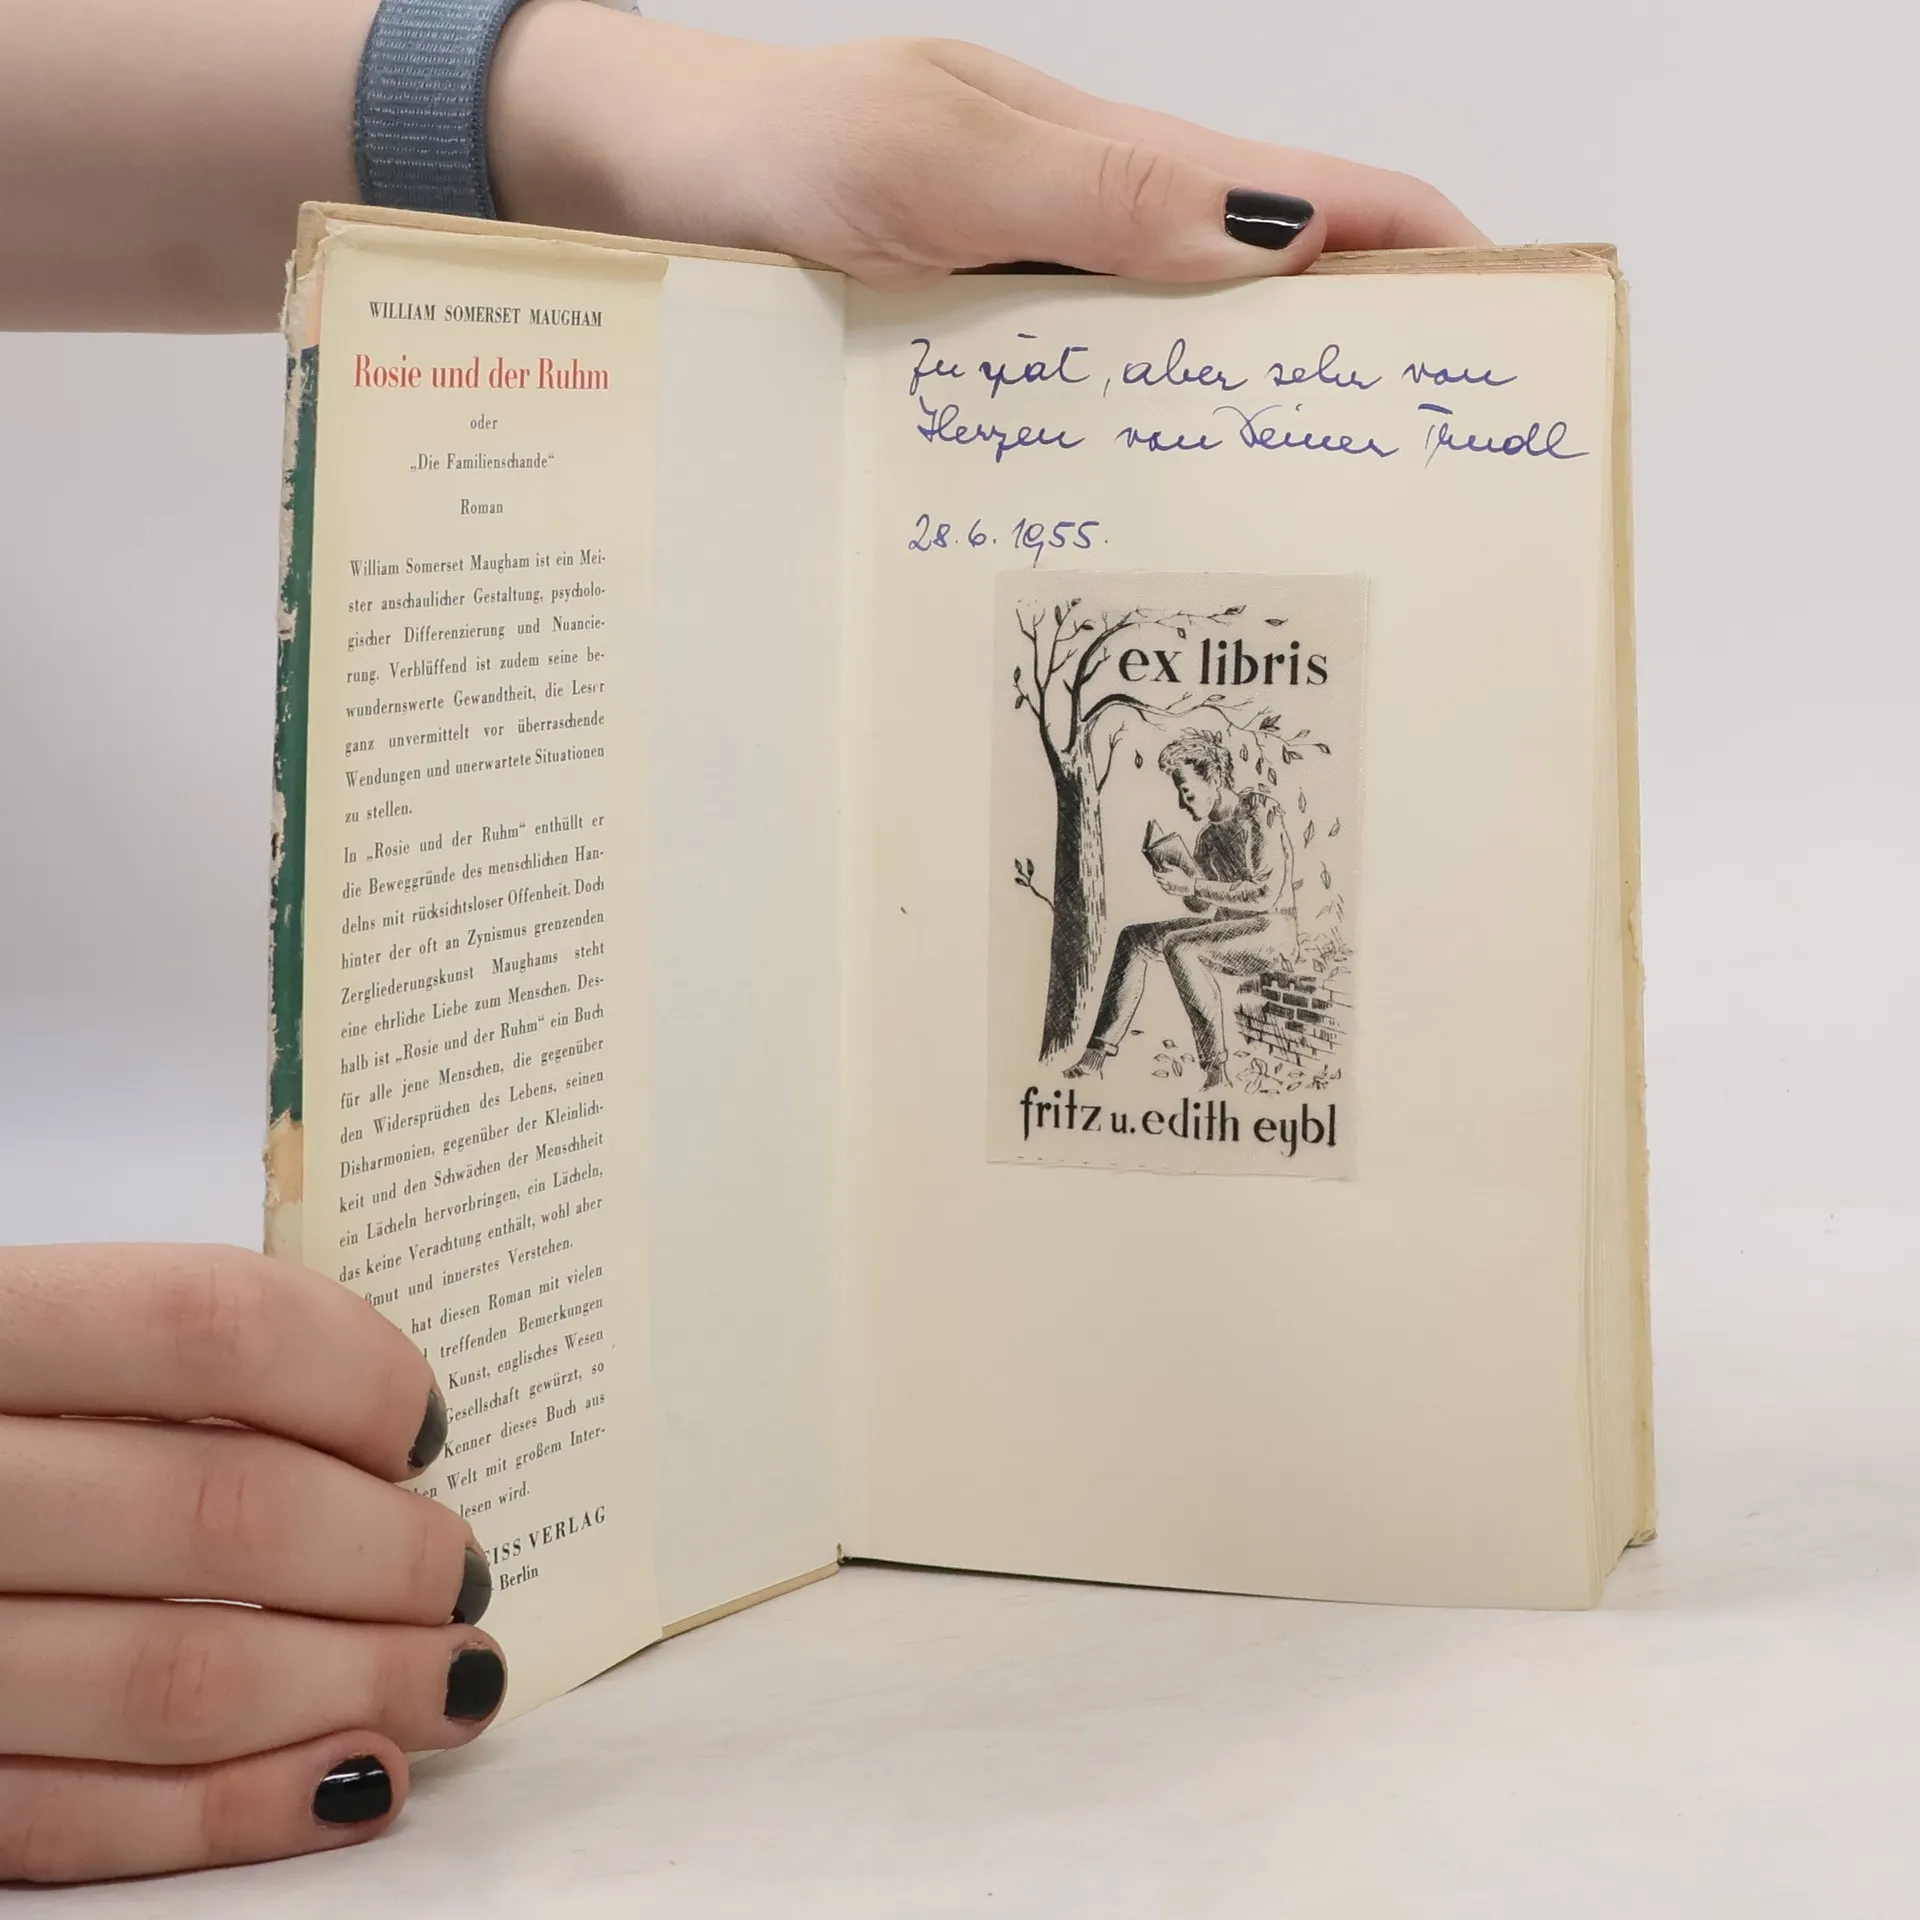 WILLIAM SOMERSET MAUGHAM
Rosie und der Ruhm
oder
„Die Familienschande“
Roman
William Somerset Maugham ist ein Mei-
ster anschaulicher Gestaltung, psycholo-
gischer Differenzierung und Nuancie-
rung. Verblüffend ist zudem seine be-
wundernswerte Gewandtheit, die Leser
ganz unvermittelt vor überraschende
Wendungen und unerwartete Situationen
zu stellen.
In „Rosie und der Ruhm“ enthüllt er
die Beweggründe des menschlichen Han-
delns mit rücksichtsloser Offenheit. Doch
hinter der oft an Zynismus grenzenden
Zergliederungskunst Maughams steht
eine ehrliche Liebe zum Menschen. Des-
halb ist „Rosie und der Ruhm“ ein Buch
für alle jene Menschen, die gegenüber
den Widersprüchen des Lebens, seinen
Disharmonien, gegenüber der Kleinlich-
keit und den Schwächen der Menschheit
ein Lächeln hervorbringen, ein Lächeln,
das keine Verachtung enthält, wohl aber
und innerstes Verstehen.
hat diesen Roman mit vielen
treffenden Bemerkungen
Kunst, englisches Wesen
Gesellschaft gewürzt, so
Kenner dieses Buch aus
Welt mit großem Inter-
lesen wird.
VERLAG
Berlin
Zu spät, aber sehr von
Herzen von Deiner Trudl
28.6.1955.
ex libris
fritz u. edith eybl